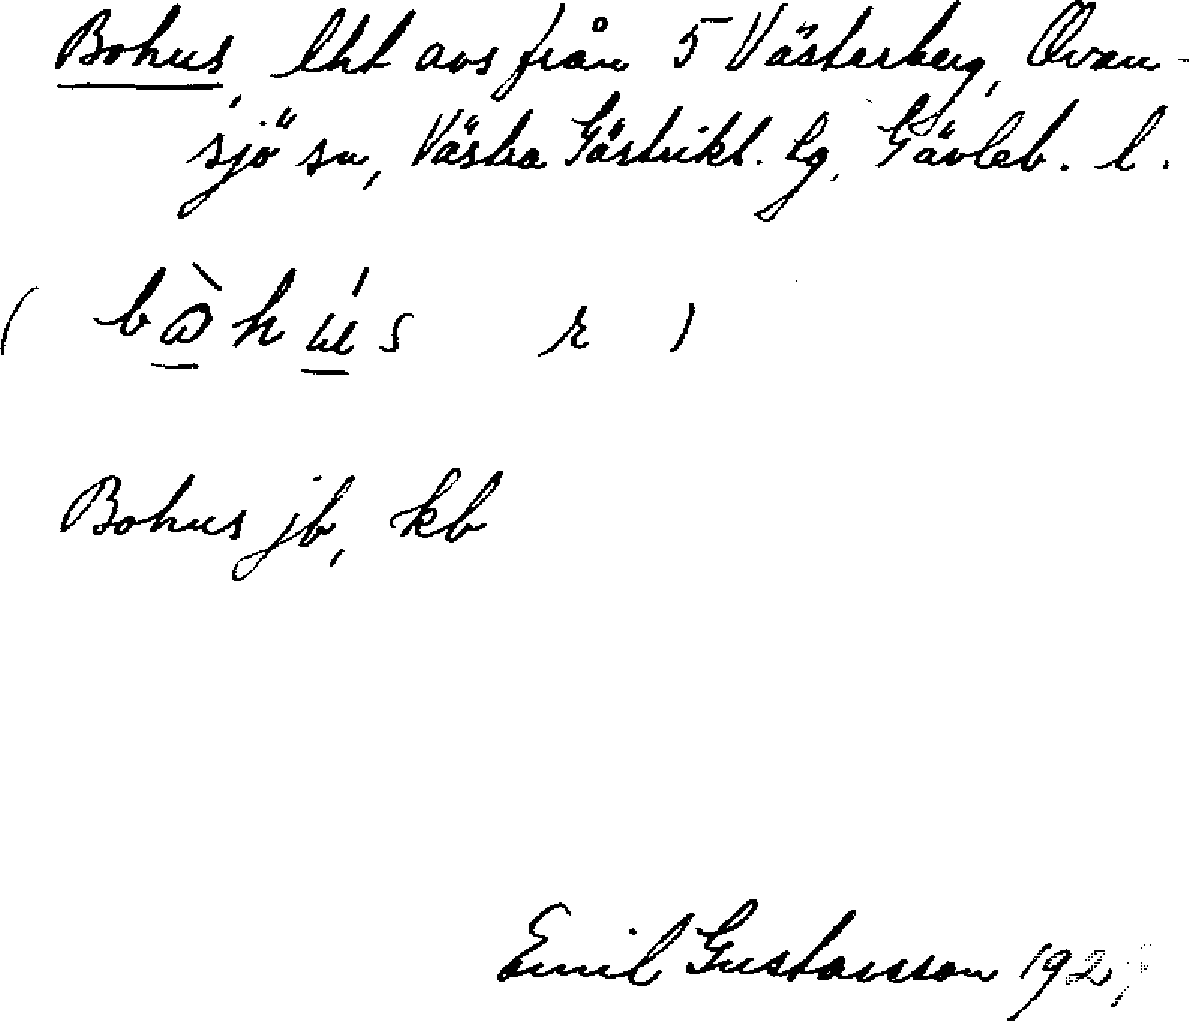 Bohus, lht avs från 5 Västerberg, Ovan-
sjö sn, Västra Gästrikl. lg, Gävleb. l.
( bòhús r )
Bohus jb, kb
Emil Gustavsson